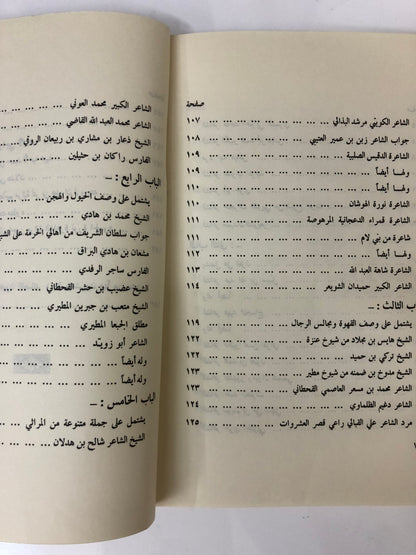 صفحة
الشاعر الكويتي مرشد البذالي ... ... ... ... ... ١٠٧
جواب الشاعر زبن بن عمير العتيبي ... ... ... ... ١٠٨
الشاعرة الدقيس الصلبية ... ... ... ... ... ١٠٩
ولها أيضاً ... ... ... ... ... ١١٠
الشاعرة نورة الهوشان ... ... ... ... ... ١١٠
الشاعرة قمراء الدعجانية المرهوصة ... ... ... ١١١
شاعرة من بني لام ... ... ... ... ... ١١١
ولها أيضاً ... ... ... ... ... ١١٢
الشاعرة شاهة العبد الله ... ... ... ... ... ١١٣
الشاعر الكبير حميدان الشويعر ... ... ... ... ١١٤
ب الثالث : ــ
يشتمل على وصف القهوة ومجالس الرجال ... ... ١١٩
الشيخ هايس بن مجلاد من شيوخ عنزة ... ... ... ١٢٢
الشيخ تركي بن حميد ... ... ... ... ... ١٢٢
الشيخ مندوخ بن ضمنه من شيوخ مطير ... ... ١٢٣
الشاعر محمد بن مسعر العاصمي القحطاني ... ... ١٢٣
الشاعر دغيم الظلماوي ... ... ... ... ١٢٤
مرد الشاعر علي القبالي راعي قصر العشروات ... ... ١٢٥
الشاعر الكبير محمد العوني ... ... ... ...
الشاعر محمد العبد الله القاضي ... ... ...
الشيخ ذعار بن مشاري بن ربيعان الروقي ... ...
الفارس راكان بن حثلين ... ... ... ...
الباب الرابع : ــ
يشتمل على وصف الخيول والهجن ... ... ...
الشيخ محمد بن هادي ... ... ... ...
جواب سلطان الشريف من أهالي الخرمة على الشيخ
مشعان بن هادي البراق ... ... ...
الفارس ساجر الرفدي ... ... ... ...
الشيخ عضيب بن حشر القحطاني ... ... ...
الشيخ متعب بن جبرين المطيري ... ... ...
مطلق الجبعا المطيري ... ... ... ...
الشاعر أبو زويد ... ... ... ...
وله أيضاً ... ... ...
وله أيضاً ... ... ...
الباب الخامس : ــ
يشتمل على جملة متنوعة من المراثي ... ...
الشيخ الشاعر شالح بن هدلان ... ...